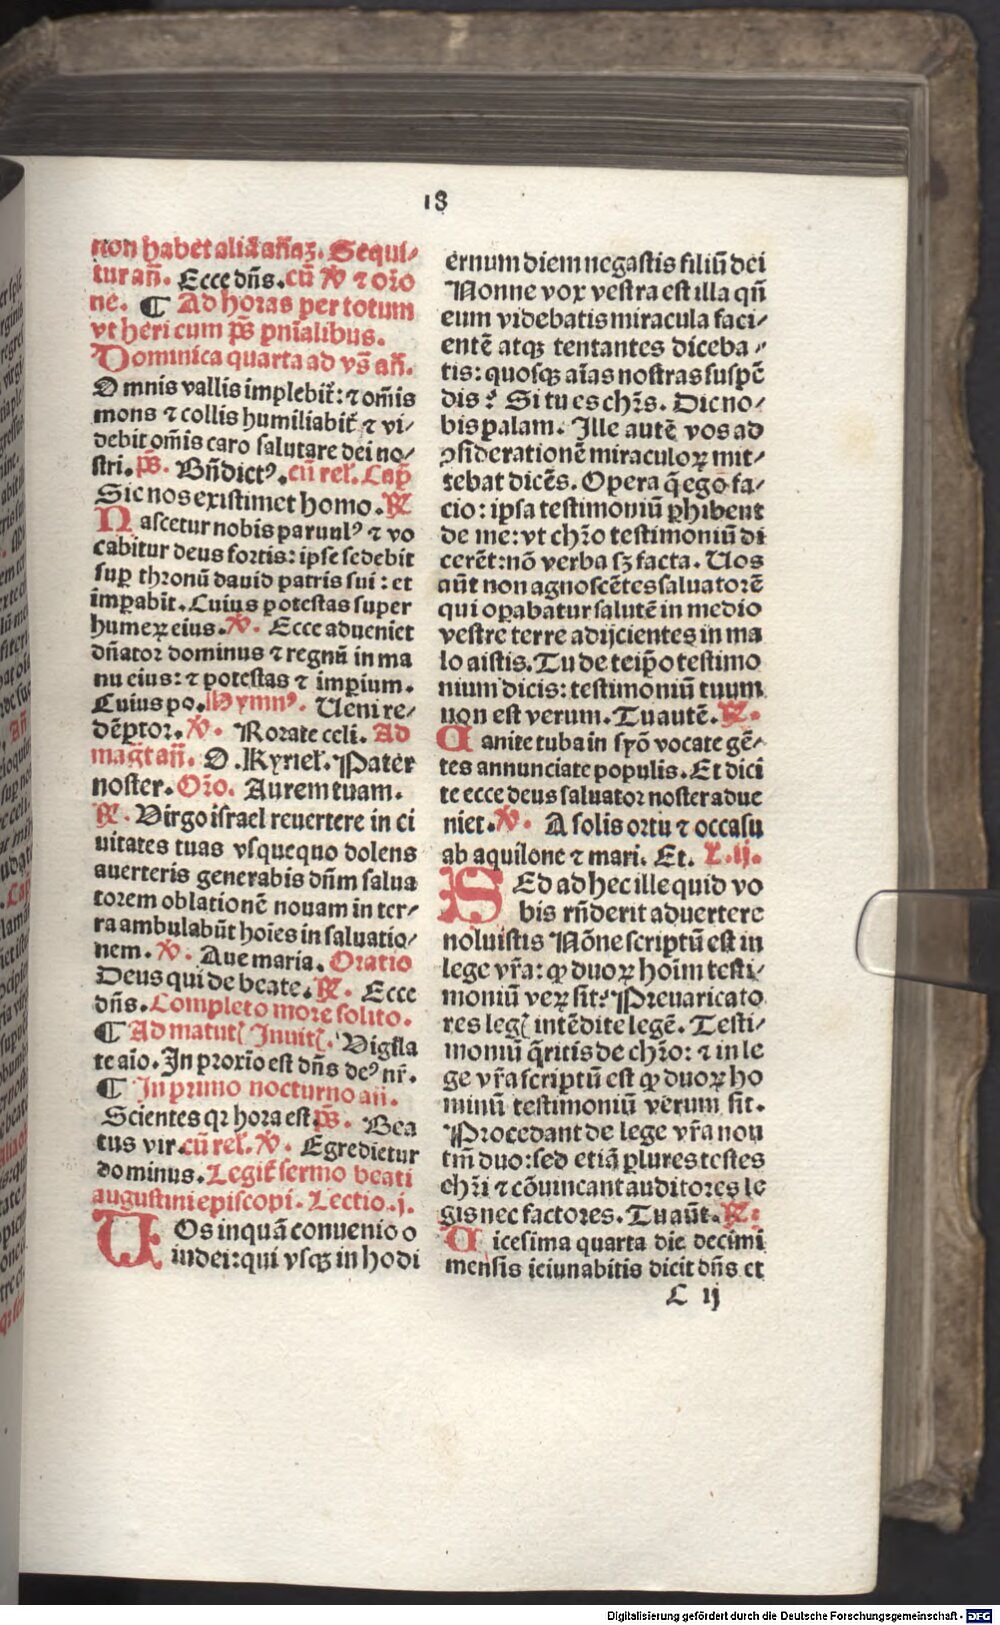 18
non habet aliā añaꝫ. Sequi⸗
tur añ. Ecce dñs. cū ℣ ⁊ oro
ne. ¶ Ad horas per totum
vt heri cum p̄s pn̄ialibus.
Dominica quarta ad vs̄ añ.
Omnis vallis implebit᷑: ⁊ om̄is
mons ⁊ collis humiliabit᷑ ⁊ vi⸗
debit om̄is caro salutare dei no⸗
stri. p̄s. Bn̄dictꝰ. cū rel. Cap̄
Sic nos existimet homo. ℟
Nascetur nobis paruulꝰ ⁊ vo
cabitur deus fortis: ipse sedebit
sup̄ thronū dauid patris sui: et
imꝑabit̄. Cuius potestas super
humeꝝ eius. ℣. Ecce adueniet
dn̄ator dominus ⁊ regnū in ma
nu eius: ⁊ potestas ⁊ imꝑium.
Cuius po. Hymnꝰ. Ueni re⸗
dēptor. ℣. Rorate celi. Ad
magt̄ añ. O. Kyriel̄. Pater
noster. Oro. Aurem tuam.
℟. Virgo israel reuertere in ci
uitates tuas vsquequo dolens
auerteris generabis dn̄m salua
torem oblationē nouam in ter⸗
ra ambulabūt hoīes in saluatio⸗
nem. ℣. Aue maria. Oratio
Deus qui de beate. ℟. Ecce
dn̄s. Completo more solito.
¶ Ad matut᷑ Inuit᷑. Vigila
te aīo. In proxīo est dn̄s deꝰ nr̄.
¶ In primo nocturno an̄.
Scientes qꝛ hora est p̄s. Bea
tus vir. cū rel̄. ℣. Egredietur
dominus. Legit᷑ sermo beati
augustini episcopi. Lectio .j.
UOs inquā conuenio o
iudei: qui vsqꝫ in hodi
ernum diem negastis filiū dei
Nonne vox vestra est illa qn̄
eum videbatis miracula faci⸗
entē atqꝫ tentantes diceba⸗
tis: quosqꝫ aīas nostras suspē
dis? Si tu es chr̄s. Dic no⸗
bis palam. Ille autē vos ad
ꝯsiderationē miraculoꝝ mit⸗
tebat dicēs. Opera q̄ ego fa⸗
cio: ipsa testimoniū ꝑhibent
de me: vt chr̄o testimoniū di
cerēt: nō verba sꝫ facta. Uos
aūt non agnoscētes saluatorē
qui oꝑabatur salutē in medio
vestre terre adijcientes in ma
lo aistis. Tu de teip̄o testimo
nium dicis: testimoniū tuum
non est verum. Tu autē. ℟.
Canite tuba in syō vocate gē⸗
tes annunciate populis. Et dici
te ecce deus saluator noster adue
niet. ℣. A solis ortu ⁊ occasu
ab aquilone ⁊ mari. Et. L. ij.
SEd ad hec ille quid vo
bis rn̄derit aduertere
noluistis Nōne scriptū est in
lege vr̄a: ꝙ duoꝝ hoīm testi⸗
moniū veꝝ sit? Preuaricato
res leg᷑ intēdite legē. Testi⸗
moniū q̄ritis de chr̄o: ⁊ in le
ge vr̄a scriptū est ꝙ duoꝝ ho
minū testimoniū verum sit.
Procedant de lege vr̄a non
tm̄ duo: sed etiā ꝑlures testes
chr̄i ⁊ cōuincant auditores le
gis nec factores. Tu aūt. ℟:
Uicesima quarta die decimi
mensis ieiunabitis dicit dn̄s et
C ij
Digitalisierung gefördert durch die Deutsche Forschungsgemeinschaft - DFG